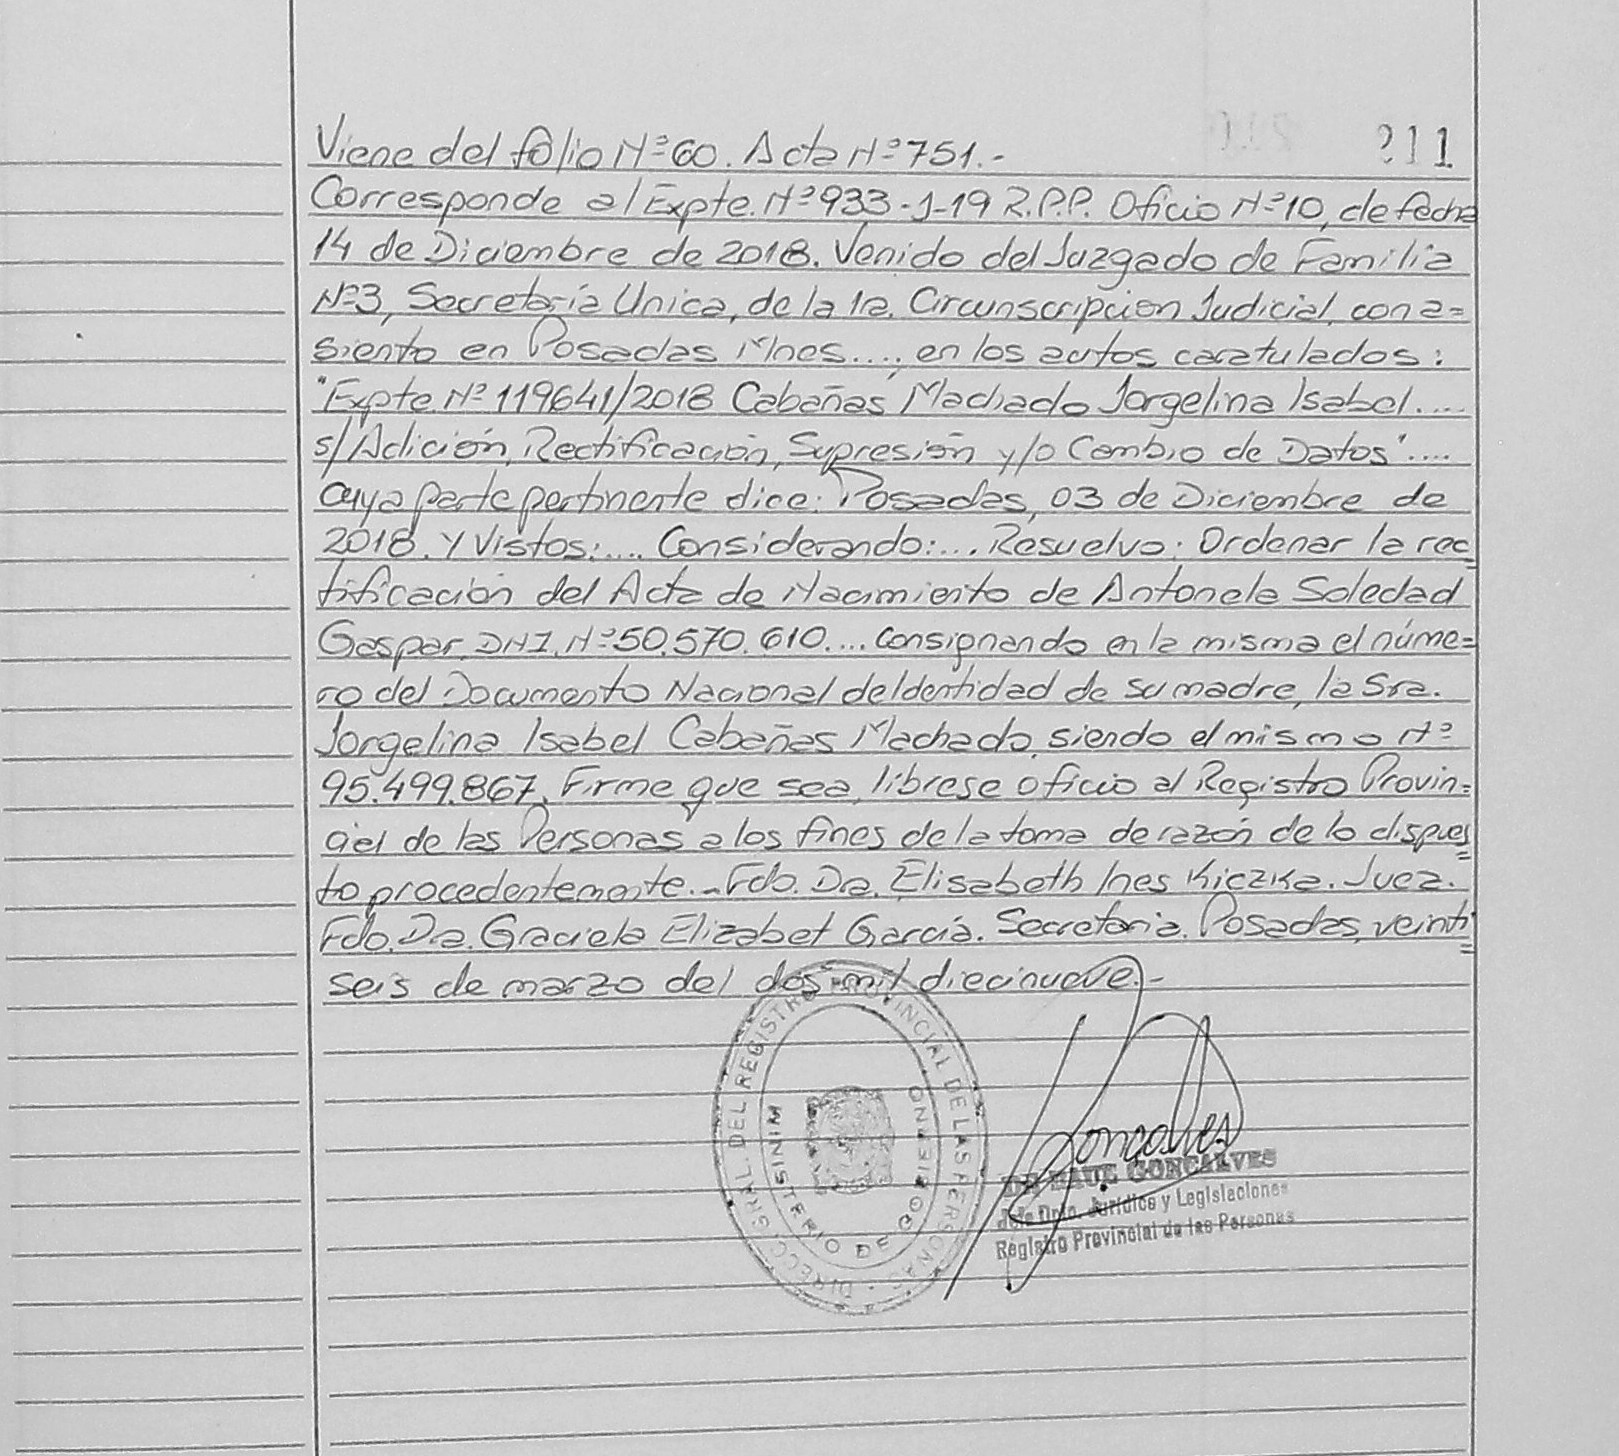 211
Viene del folio Nº 60. Acta Nº 751.-
Corresponde al Expte. Nº 933-J-19 R.P.P. Oficio Nº 10, de fecha
14 de Diciembre de 2018. Venido del Juzgado de Familia
Nº 3, Secretaría Unica, de la 1ra. Circunscripcion Judicial, con a=
siento en Posadas Mnes...., en los autos caratulados:
"Expte. Nº 119641/2018 Cabañas Machado Jorgelina Isabel....
s/ Adición, Rectificación, Supresión y/o Cambio de Datos"....
cuya parte pertinente dice: Posadas, 03 de Diciembre de
2018. Y Vistos:.... Considerando:... Resuelvo: Ordenar la rec=
tificación del Acta de Nacimiento de Antonela Soledad
Gaspar, DNI. Nº 50.570.610.... consignando en la misma el núme=
ro del Documento Nacional de Identidad de su madre, la Sra.
Jorgelina Isabel Cabañas Machado, siendo el mismo Nº
95.499.867. Firme que sea, líbrese oficio al Registro Provin=
cial de las Personas a los fines de la toma de razón de lo dispues=
to procedentemente.- Fdo. Dra. Elisabeth Ines Kiczka. Juez.
Fdo. Dra. Graciela Elizabet García. Secretaria. Posadas, veinti=
seis de marzo del dos mil diecinueve.-
DIRECC. GRAL. DEL REGISTRO PROVINCIAL DE LAS PERSONAS
MINISTERIO DE GOBIERNO
Goncalves
GONCALVES
Jefe Dpto. Jurídico y Legislaciones
Registro Provincial de las Personas